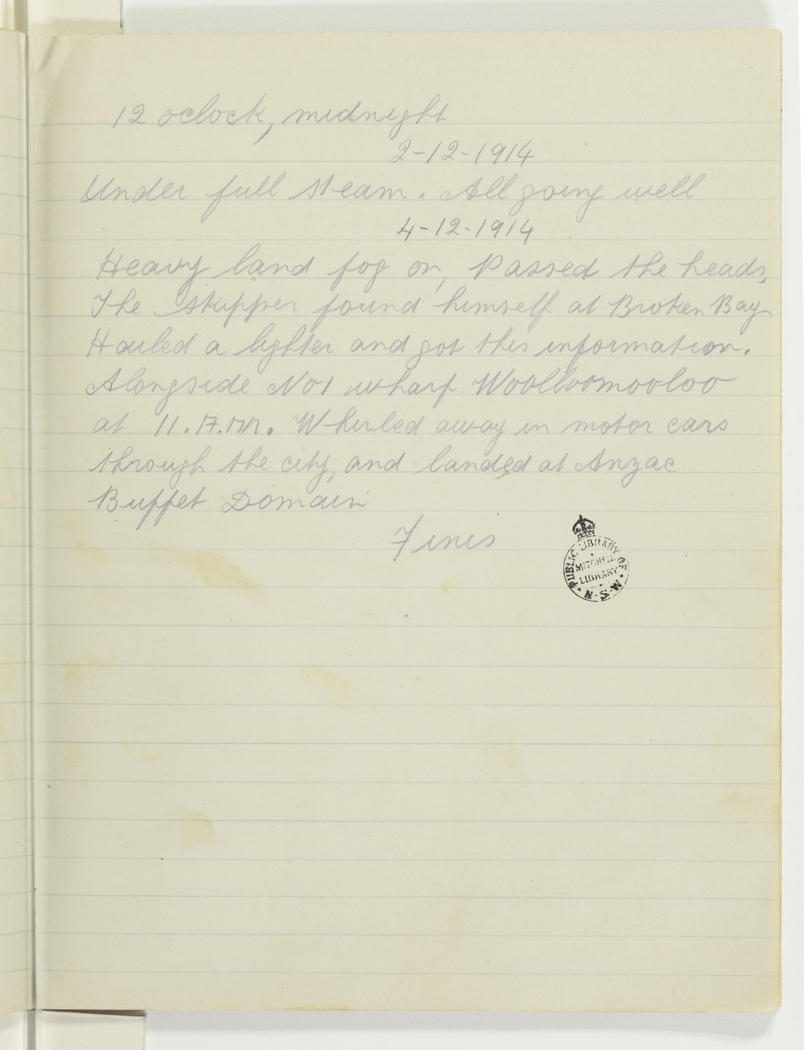 12 oclock, midnight
2-12-1914
Under full steam. All going well
4-12-1914
Heavy land fog on, Passed the heads,
The skipper found himself at Broken Bay
Hailed a lighter and got this information.
Alongside No1 wharf Woolloomooloo
at 11.A.M. Whirled away in motor cars
through the city, and landed at Anzac
Buffet Domain
Finis
PUBLIC LIBRARY OF N.S.W.
MITCHELL
LIBRARY